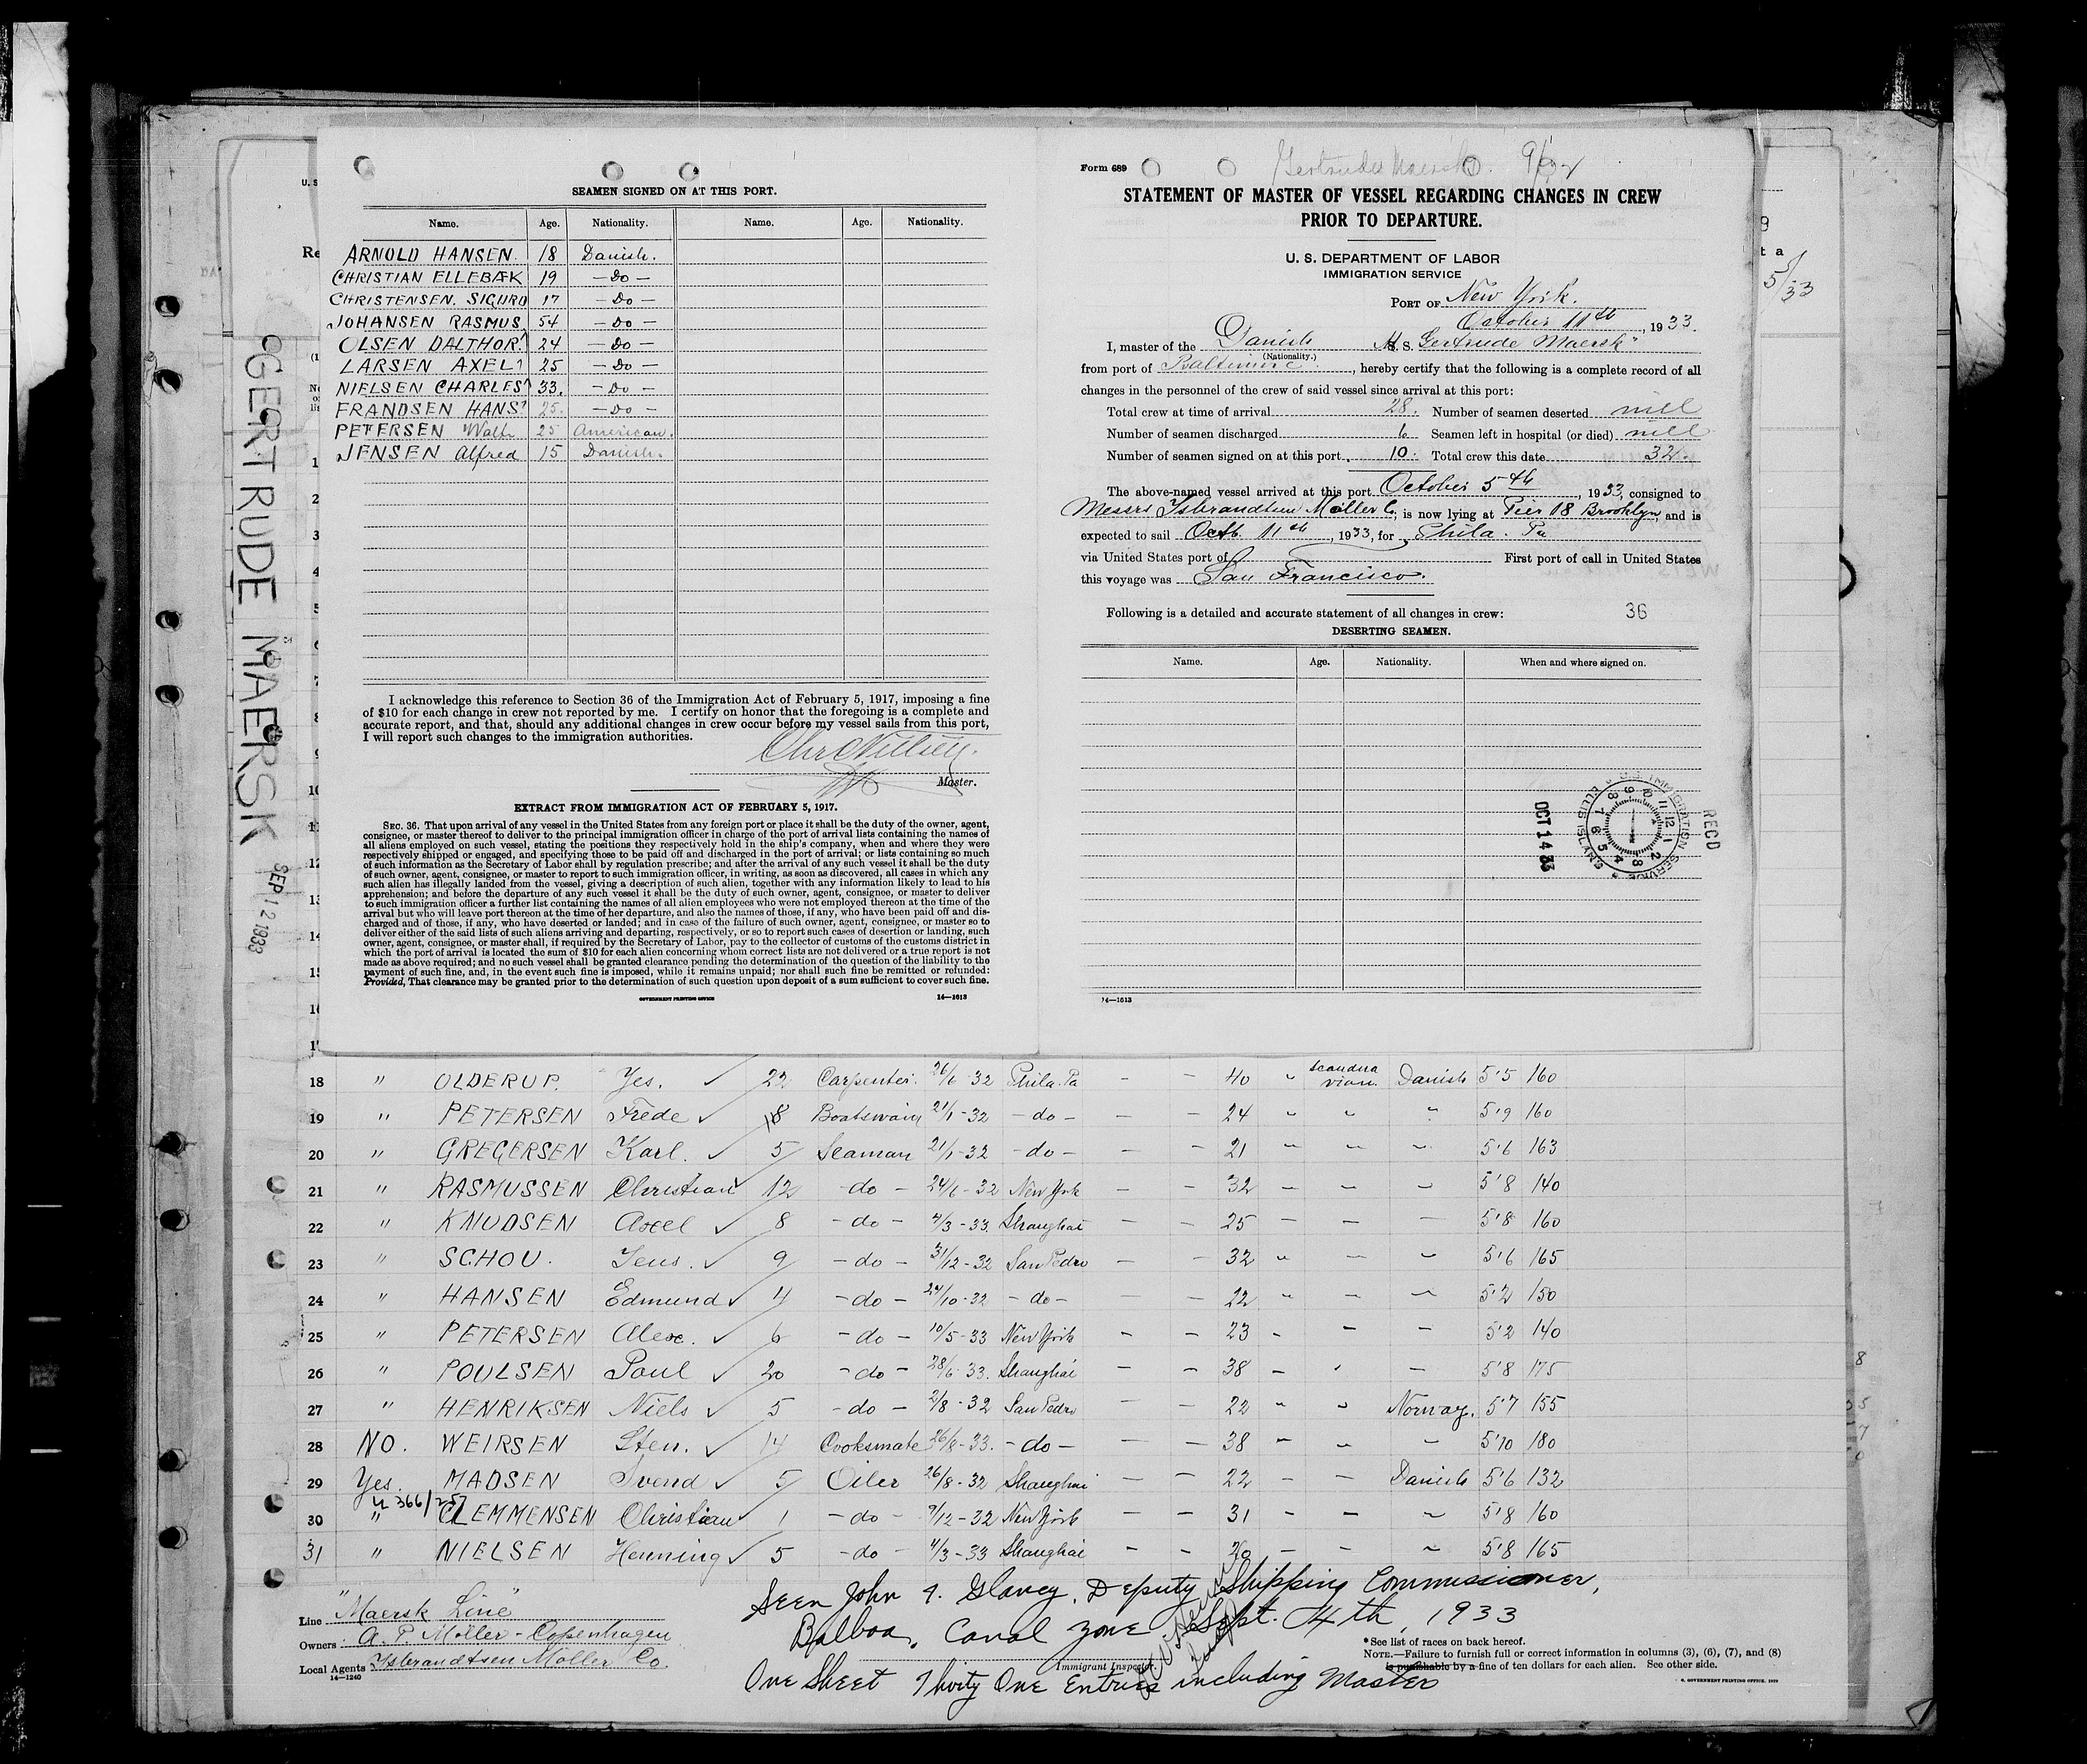 SEAMEN SIGNED ON AT THIS PORT.
Name. Age. Nationality. Name. Age. Nationality.
ARNOLD HANSEN. 18 Danish.
CHRISTIAN ELLEBÆK 19 — Do —
CHRISTENSEN. SIGURD 17 — Do —
JOHANSEN RASMUS 54 — Do —
OLSEN DALTHOR. 24 — Do —
LARSEN AXEL 25 — Do —
NIELSEN CHARLES 33. — Do —
FRANDSEN HANS 25. — Do —
PETERSEN Walt 25 American.
JENSEN Alfred 15 Danish.
I acknowledge this reference to Section 36 of the Immigration Act of February 5, 1917, imposing a fine
of $10 for each change in crew not reported by me. I certify on honor that the foregoing is a complete and
accurate report, and that, should any additional changes in crew occur before my vessel sails from this port,
I will report such changes to the immigration authorities.
Chr Nielsen
Master.
EXTRACT FROM IMMIGRATION ACT OF FEBRUARY 5, 1917.
SEC. 36. That upon arrival of any vessel in the United States from any foreign port or place it shall be the duty of the owner, agent,
consignee, or master thereof to deliver to the principal immigration officer in charge of the port of arrival lists containing the names of
all aliens employed on such vessel, stating the positions they respectively hold in the ship's company, when and where they were
respectively shipped or engaged, and specifying those to be paid off and discharged in the port of arrival; or lists containing so much
of such information as the Secretary of Labor shall by regulation prescribe; and after the arrival of any such vessel it shall be the duty
of such owner, agent, consignee, or master to report to such immigration officer, in writing, as soon as discovered, all cases in which any
such alien has illegally landed from the vessel, giving a description of such alien, together with any information likely to lead to his
apprehension; and before the departure of any such vessel it shall be the duty of such owner, agent, consignee, or master to deliver
to such immigration officer a further list containing the names of all alien employees who were not employed thereon at the time of the
arrival but who will leave port thereon at the time of her departure, and also the names of those, if any, who have been paid off and dis-
charged and of those, if any, who have deserted or landed; and in case of the failure of such owner, agent, consignee, or master so to
deliver either of the said lists of such aliens arriving and departing, respectively, or so to report such cases of desertion or landing, such
owner, agent, consignee, or master shall, if required by the Secretary of Labor, pay to the collector of customs of the customs district in
which the port of arrival is located the sum of $10 for each alien concerning whom correct lists are not delivered or a true report is not
made as above required; and no such vessel shall be granted clearance pending the determination of the question of the liability to the
payment of such fine, and, in the event such fine is imposed, while it remains unpaid; nor shall such fine be remitted or refunded:
Provided, That clearance may be granted prior to the determination of such question upon deposit of a sum sufficient to cover such fine.
GOVERNMENT PRINTING OFFICE 14—1613
Form 689
Gertrude Maersk.
STATEMENT OF MASTER OF VESSEL REGARDING CHANGES IN CREW
PRIOR TO DEPARTURE.
U. S. DEPARTMENT OF LABOR
IMMIGRATION SERVICE
PORT OF New York.
October 11th, 1933.
I, master of the Danish M. S. Gertrude Maersk"
(Nationality.)
from port of Baltimore, hereby certify that the following is a complete record of all
changes in the personnel of the crew of said vessel since arrival at this port:
Total crew at time of arrival 28. Number of seamen deserted nill
Number of seamen discharged 6 Seamen left in hospital (or died) nill
Number of seamen signed on at this port 10. Total crew this date 32.
The above-named vessel arrived at this port October 5th, 1933, consigned to
Messrs Isbrandtsen Moller C, is now lying at Pier 18 Brooklyn and is
expected to sail Octb. 11th, 1933, for Phila. Pa
via United States port of First port of call in United States
this voyage was San Francisco.
Following is a detailed and accurate statement of all changes in crew: 36
DESERTING SEAMEN.
Name. Age. Nationality. When and where signed on.
REC'D
U.S. IMMIGRATION SERVICE ELLIS ISLAND
OCT 14 33
14—1613
GERTRUDE MAERSK
SEP 12 1933
5/33
18 " OLDERUP. Yes. 22 Carpenter. 26/6 32 Phila. Pa — — 40 " Scandinavian. Danish 5'5 160
19 " PETERSEN Frede 18 Boatswain 21/1-32 — do — — — 24 " " " 5'9 160
20 " GREGERSEN Karl. 5 Seaman 21/1-32 — do — — — 21 " " " 5'6 163
21 " RASMUSSEN Christian 12 — do — 24/6-32 New York — — 32 " " " 5'8 140
22 " KNUDSEN Axel 8 — do — 4/3-33. Shanghai — — 25 — — — 5'8 160
23 " SCHOU. Jens. 9 — do — 31/12-32 San Pedro — — 32 " " " 5'6 165
24 " HANSEN Edmund 4 — do — 24/10-32 — do — — — 22 " " " 5'2 150
25 " PETERSEN Alex. 6 — do — 10/5-33 New York — — 23 - - - 5'2 140
26 " POULSEN Poul 20 — do — 28/6-33. Shanghai — — 38 — ' — 5'8 175
27 " HENRIKSEN Niels 5 — do — 2/8-32 San Pedro — — 22 " " Norway. 5'7 155
28 NO. WEIRSEN Sten. 14 Cooksmate 26/8-33. — do — — — 38 " " " 5'10 180
29 Yes. MADSEN Svend 5 Oiler 26/8-32 Shanghai — — 22 - - Danish 5'6 132
30 " CLEMMENSEN Christian 1 — do — 7/12-32 New York — — 31 - - " 5'8 160
31 " NIELSEN Henning 5 — do — 4/3-33 Shanghai — — 20 - - " 5'8 165
Line "Maersk Line"
Owners A. P. Møller - Copenhagen
Local Agents Isbrandtsen Moller Co.
14—1240
Seen John Glancy, Deputy Shipping Commissioner,
Balboa, Canal Zone. Sept. 4th, 1933
Immigrant Inspector.
One Sheet Thirty One Entries including Master
*See list of races on back hereof.
NOTE.—Failure to furnish full or correct information in columns (3), (6), (7), and (8)
is punishable by a fine of ten dollars for each alien. See other side.
U. S. GOVERNMENT PRINTING OFFICE. 1929